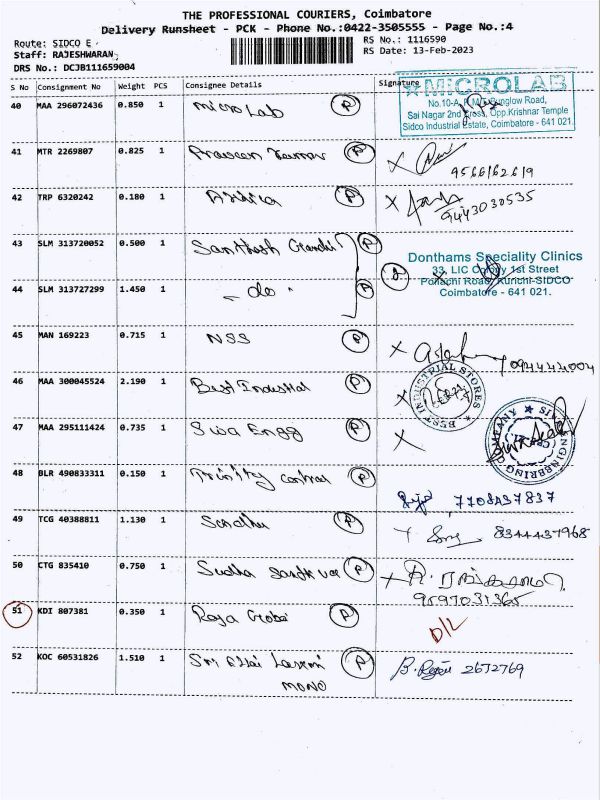 THE PROFESSIONAL COURIERS, Coimbatore
Delivery Runsheet - PCK - Phone No.:0422-3505555 - Page No.:4
Route: SIDCO E
Staff: RAJESHWARAN
DRS No.: DCJB111659004
RS No.: 1116590
RS Date: 13-Feb-2023
S No Consignment No Weight PCS Consignee Details Signature
40 MAA 296072436 0.850 1 Micro Lab P
MICROLAB
Sai Nagar 2nd Cross, Opp.Krishnar Temple
Sidco Industrial Estate, Coimbatore - 641 021.
41 MTR 2269807 0.825 1 Praveen Kumar P
9566162619
42 TRP 6320242 0.180 1 P
9443030535
43 SLM 313720052 0.500 1 Santhosh P
Donthams Speciality Clinics
33, LIC Colony 1st Street
Pollachi Road, Kurichi-SIDCO
Coimbatore - 641 021.
44 SLM 313727299 1.450 1 - do - P
2
45 MAN 169223 0.715 1 NSS P
46 MAA 300045524 2.190 1 Best Industrial P
BEST INDUSTRIAL STORES
47 MAA 295111424 0.735 1 Siva Engg P
SIVA ENGINEERING COMPANY
48 BLR 490833311 0.150 1 Trinity P
7708437837
49 TCG 40388811 1.130 1 Sandhu P
8344437968
50 CTG 835410 0.750 1 Sudha P
9597031365
51 KDI 807381 0.350 1 Raja P
D/L
52 KOC 60531826 1.510 1 Sri Ellai Laxmi P
MONO
2672769